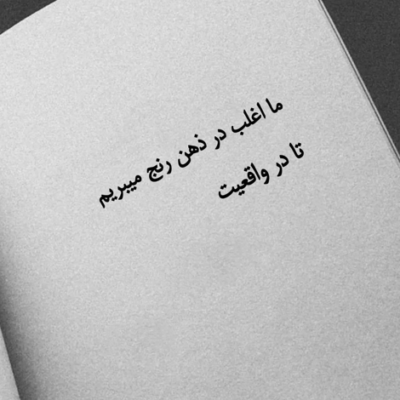 ما اغلب در ذهن رنج میبریم
تا در واقعیت